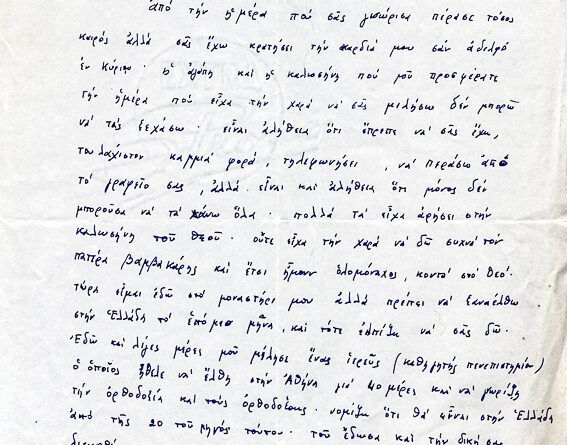 ἀπό τήν ἡμέρα πού σᾶς γνώρισα πέρασε τόσος
καιρός ἀλλά σᾶς ἔχω κρατήσει τήν καρδιά μου σάν ἀδελφό
ἐν κύριῳ. ἡ ἀγάπη καί ἡ καλωσήνη πού μοῦ προσφέρατε
τήν ἡμέρα πού εἶχα τήν χαρά νά σᾶς μιλήσω δέν μπορῶ
νά τάς ξεχάσω. εἶναι ἀλήθεια ὅτι ἔπρεπε νά σᾶς ἔχω,
τουλάχιστον καμμιά φορά, τηλεφωνήσει, νά περάσω ἀπό
τό γραφεῖο σας, ἀλλά εἶναι καί ἀλήθεια ὅτι μόνος δέν
μποροῦσα νά τά κάνω ὅλα. πολλά τά εἶχα ἀφήσει στήν
καλωσήνη τοῦ Θεοῦ. οὔτε εἶχα τήν χαρά νά δῶ συχνά τόν
πατέρα Βαμβακάρης καί ἔτσι ἤμουν ὁλομόναχος, κοντά στό Θεό.
τώρα εἶμαι ἐδῶ στό μοναστήρι μου ἀλλά πρέπει νά ξαναέλθω
στήν Ἑλλάδα τό ἑπόμεο μῆνα, καί τότε ἐλπίζω νά σᾶς δῶ.
Ἐδῶ καί λίγες μέρες μοῦ μίλησε ἕνας ἱερεῦς (καθηγητής πενεπιστημίου)
ὁ ὁποῖος ἤθελε νά ἔλθη στήν Ἀθήνα γιά 40 μέρες καί νά γνωρίζη
τήν ὀρθοδοξία καί τούς ὀρθοδόξους. νομίζω ὅτι θά εἶναι στήν Ἑλλάδα
ἀπό τῆς 20 τοῦ μηνός τούτου. τοῦ ἔδωσα καί τήν δική σας